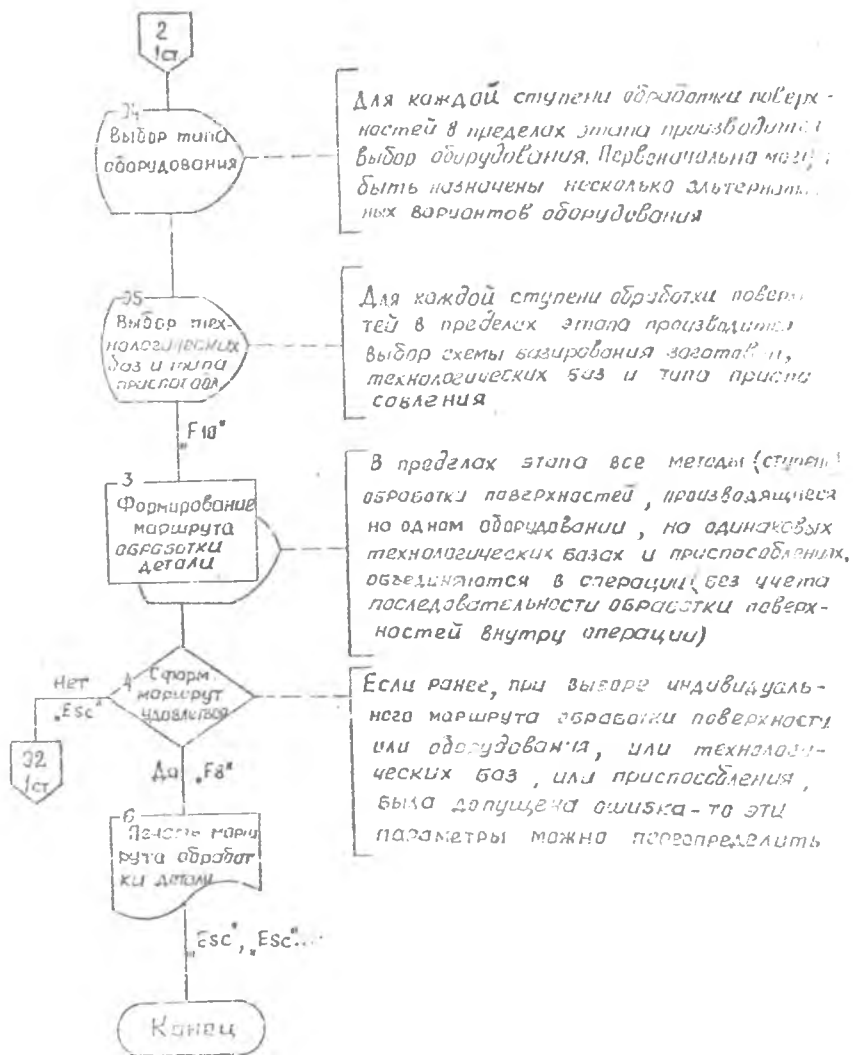 2
1ст
Э4
Выбор типа
оборудования
Для каждой ступени обработки поверх-
ностей в пределах этапа производится
выбор оборудования. Первоначально могут
быть назначены несколько альтернатив-
ных вариантов оборудования
Э5
Выбор тех-
нологических
баз и типа
приспособл.
Для каждой ступени обработки поверхнос-
тей в пределах этапа производится
выбор схемы базирования заготовки,
технологических баз и типа приспо
собления
„F10"
3
Формирование
маршрута
обработки
детали
В пределах этапа все методы (ступени)
обработки поверхностей, производящиеся
на одном оборудовании, на одинаковых
технологических базах и приспособлениях,
объединяются в операции (без учета
последовательности обработки поверх-
ностей внутру операции)
Нет
„Esc"
4
Сформ.
маршрут
удовлетвор
Э2
1ст
Да „F8"
Если ранее, при выборе индивидуаль-
ного маршрута обработки поверхности
или оборудования, или технологи-
ческих баз, или приспособления,
была допущена ошибка-то эти
параметры можно переопределить
6
Печать марш
рута обработ
ки детали
„Esc", „Esc"...
Конец